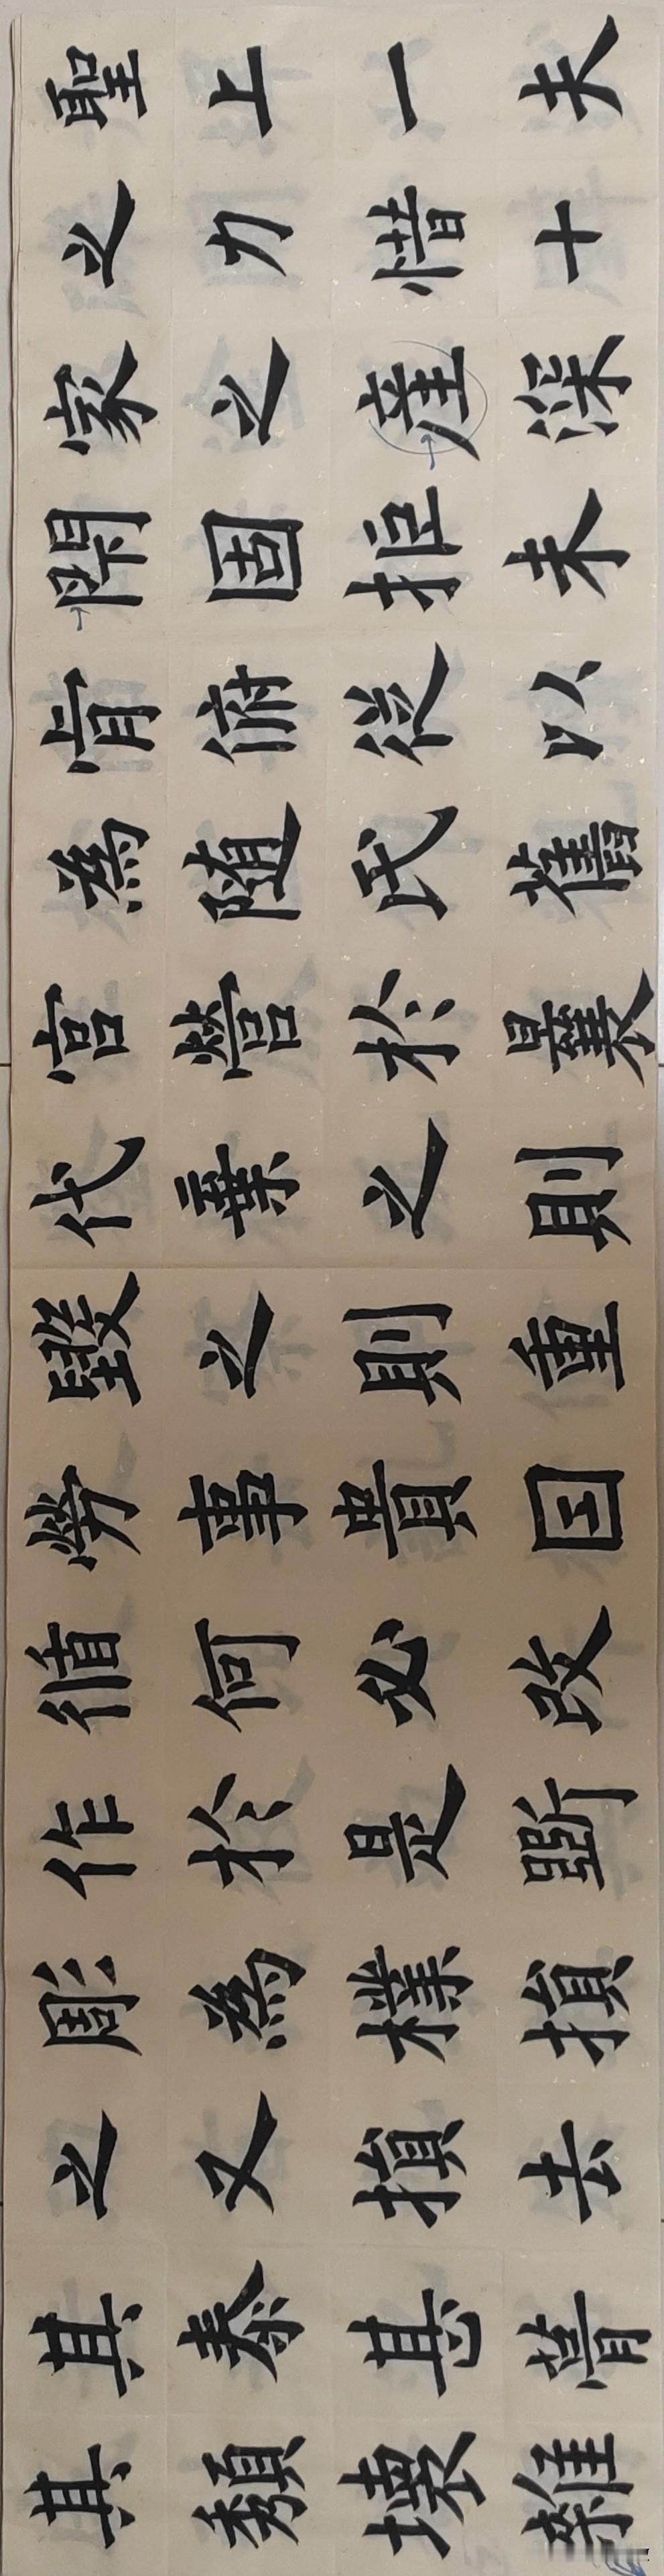 聖上一夫
之力惜十
家之産深
閇固拒未
肯俯從以
為随氏舊
宮營於曩
代棄之則
毀之則重
勞事貴囙
循何必改
作於是斲
彫為樸損
之又損去
其泰甚葺
其頹壞雜